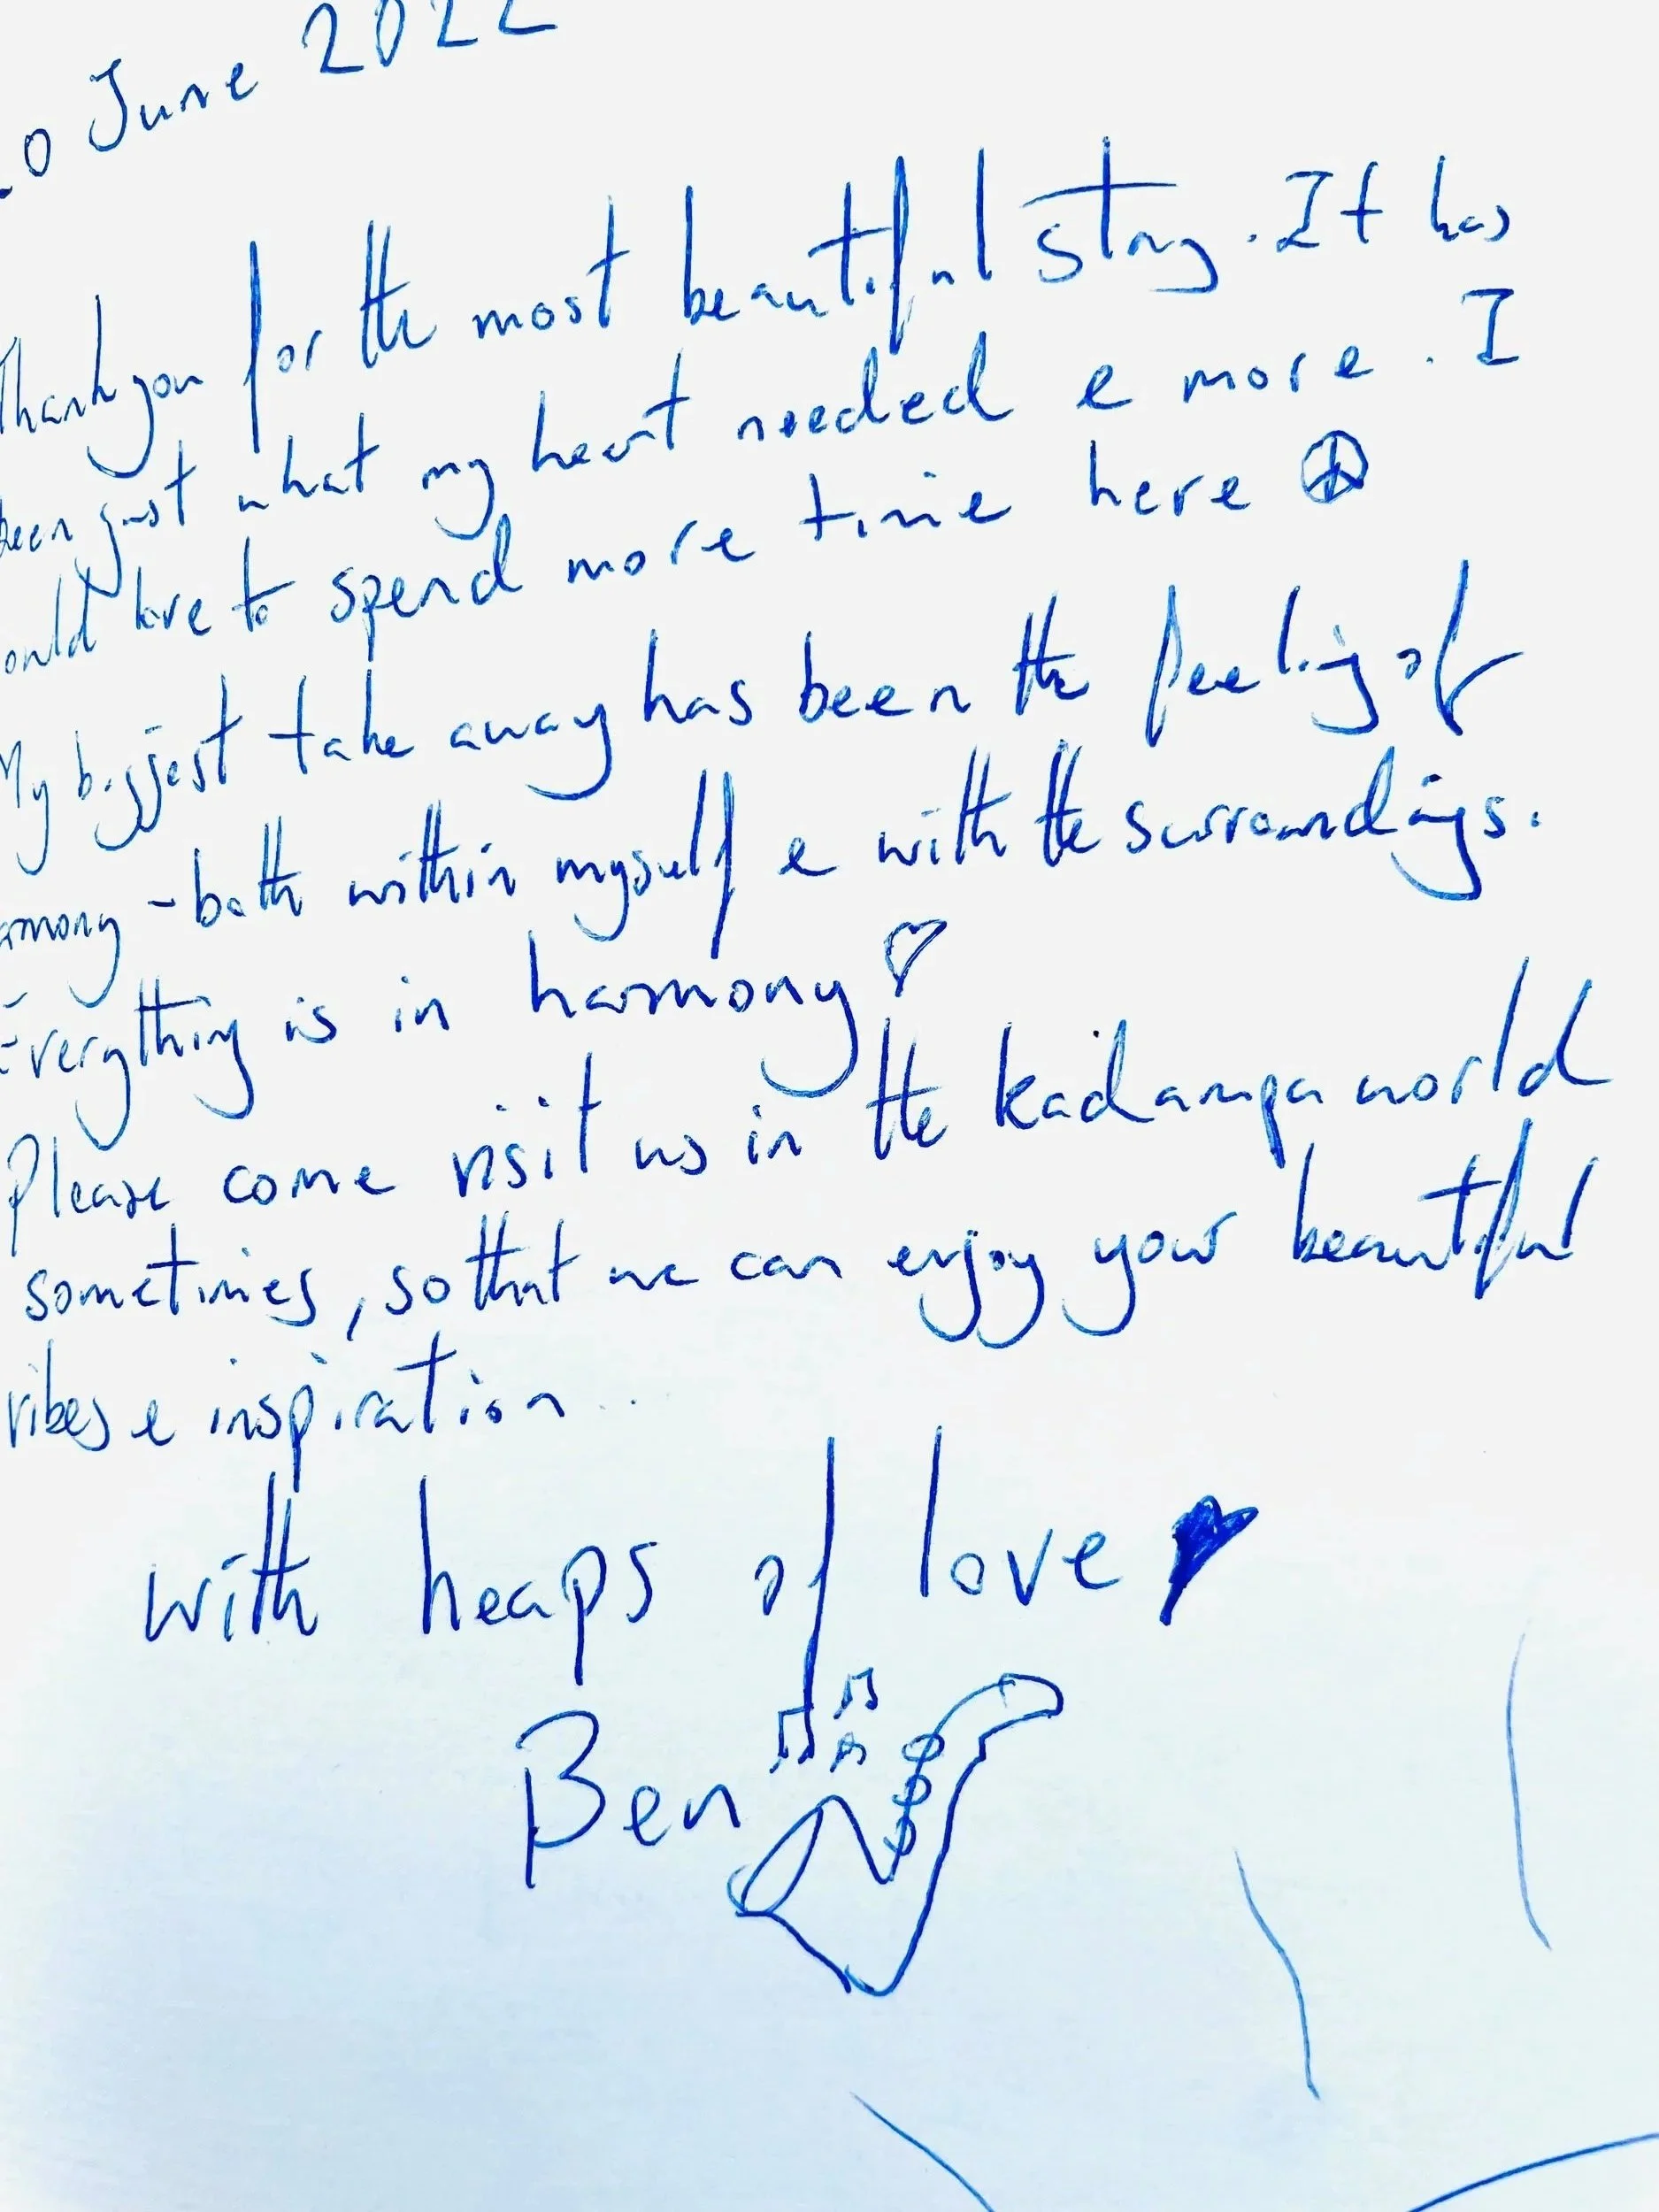 0 June 2022
Thank you for the most beautiful stay. It has
been just what my heart needed e more. I
ould love to spend more time here
My biggest take away has been the feeling of
armony - both within myself e with the surroundings.
Everything is in harmony
Please come visit us in the kadampa world
sometimes, so that we can enjoy your beautiful
vibes e inspiration..
with heaps of love
Ben